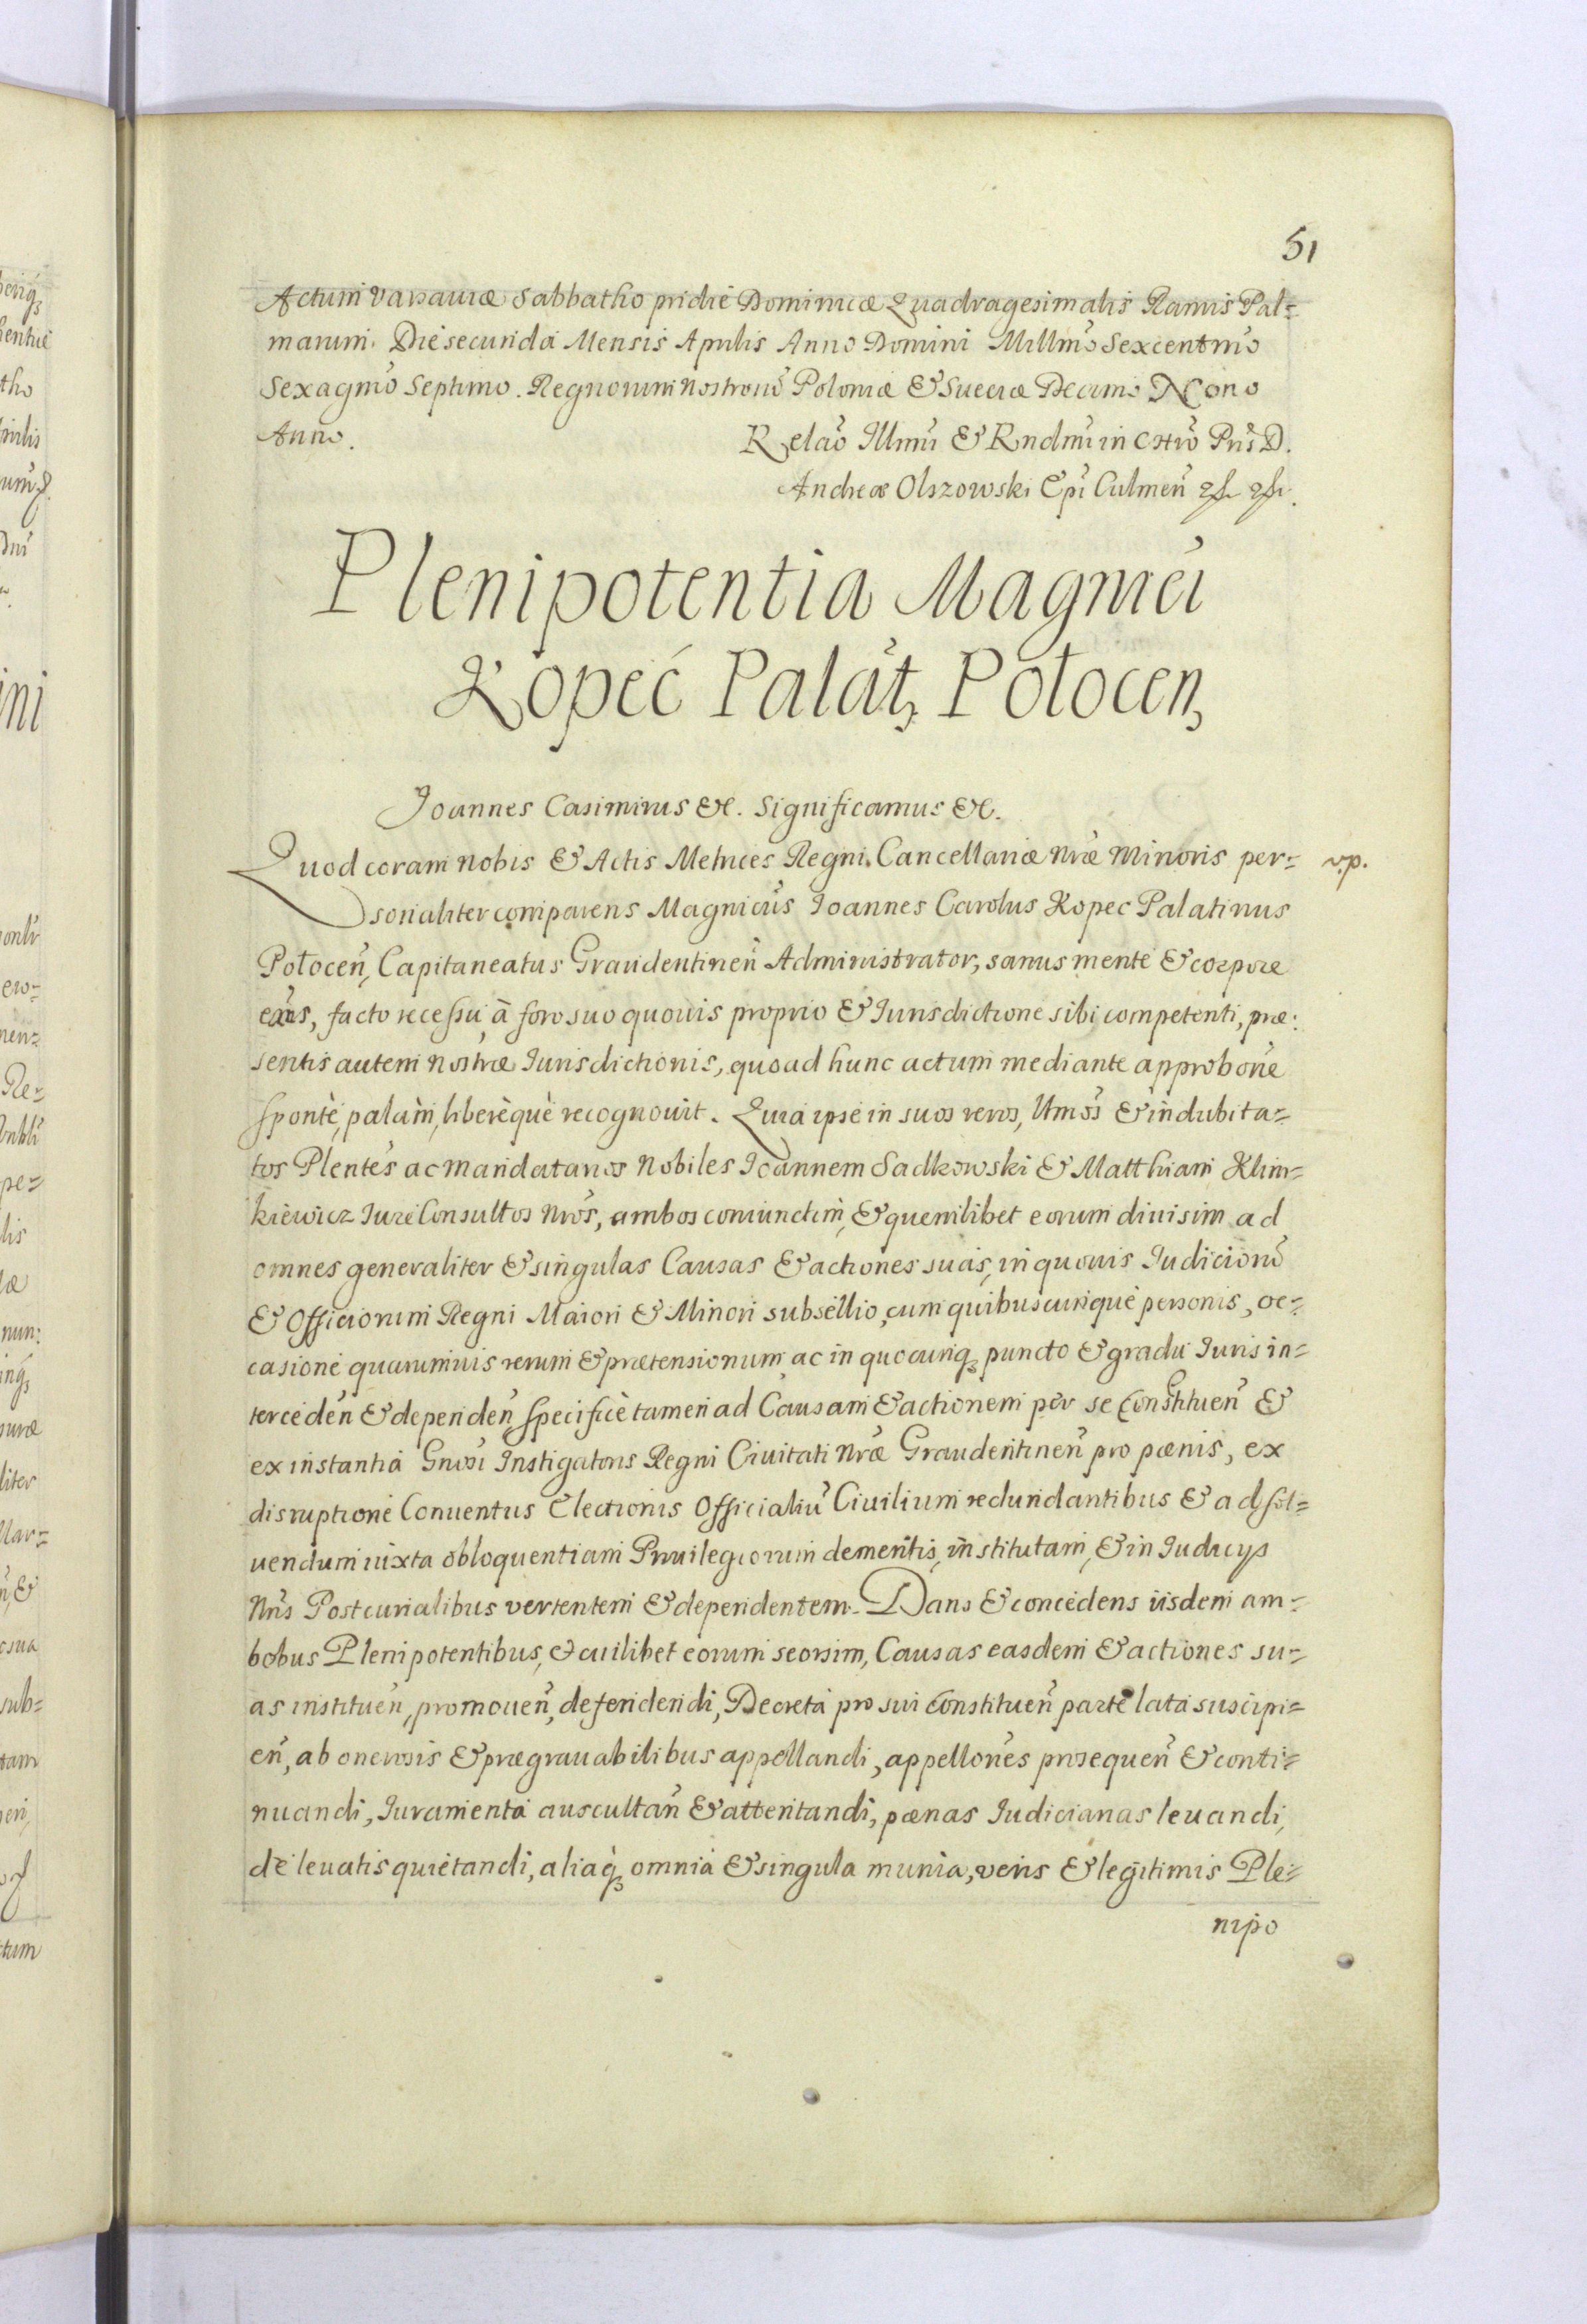 51
Actum Varsauiæ Sabbatho pridie Dominicæ Quadragesimalis Ramis Pal=
marum. Die secunda Mensis Aprilis Anno Domini Millmo Sexcentmo
Sexagmo Septimo. Regnorum nostroru Poloniæ & Sueciæ Decimo Nono
Anno.
Relaõ Illmi & Rndmi in Chro Pris D.
Andreæ Olszowski Epi Culmen̄
Plenipotentia Magnici
Kopeć Palat, Potocen,
Joannes Casimirus &c. Significamus &c.
Quod coram nobis & Actis Metrices Regni Cancellariæ Nræ Minoris per= vp.
sonaliter comparens Magnicus Joannes Carolus Kopec Palatinus
Potocen̄, Capitaneatus Graudentinen̄ Administrator, sanus mente & corpore
exñs, facto recessu à foro suo quouis proprio & Jurisdictione sibi competenti, præ:
sentis autem nostræ Jurisdictionis, quo ad hunc actum mediante approbõne
sponte, palàm, liberèquè recognouit. Quia ipse in suos veros, ltmos & indubita=
tos Plentes ac mandatarios Nobiles Joannem Sadkowski & Matthiam Klim=
kiewicz Jure Consultos Nros, ambos coniunctim, & quemlibet eorum diuisim ad
omnes generaliter & singulas Causas & actiones suas, in quouis Judicioru
& Officiorum Regni Maiori & Minori subsellio, cum quibuscunque personis, oc=
casione quarumuis rerum & prætensionum ac in quocunq; puncto & gradu Juris in=
terceden̄ & dependen̄, specificè tamen ad Causam & actionem per se Constituen̄ &
ex instantia Gnrosi Instigatoris Regni Ciuitati Nræ Graudentinen̄ pro pænis, ex
disruptione Conuentus Electionis Officialiu Ciuilium redundantibus & ad sol=
uendum iuxta obloquentiam Priuilegiorum dementis, institutam, & in Judicys
Nris Postcurialibus vertentem & dependentem. Dans & concedens iisdem am=
bobus Plenipotentibus, & cuilibet eorum seorsim, Causas easdem & actiones su=
as instituen̄, promouen̄, defendendi, Decreta pro sui Constituen̄ parte lata suscipi=
en̄, ab onerosis & prægrauabilibus appellandi, appellones prosequen̄ & conti=
nuandi, Juramenta auscultan̄ & attentandi, pænas Judiciarias leuandi,
de leuatis quietandi, aliaq; omnia & singula munia, veris & legitimis Ple=
nipo